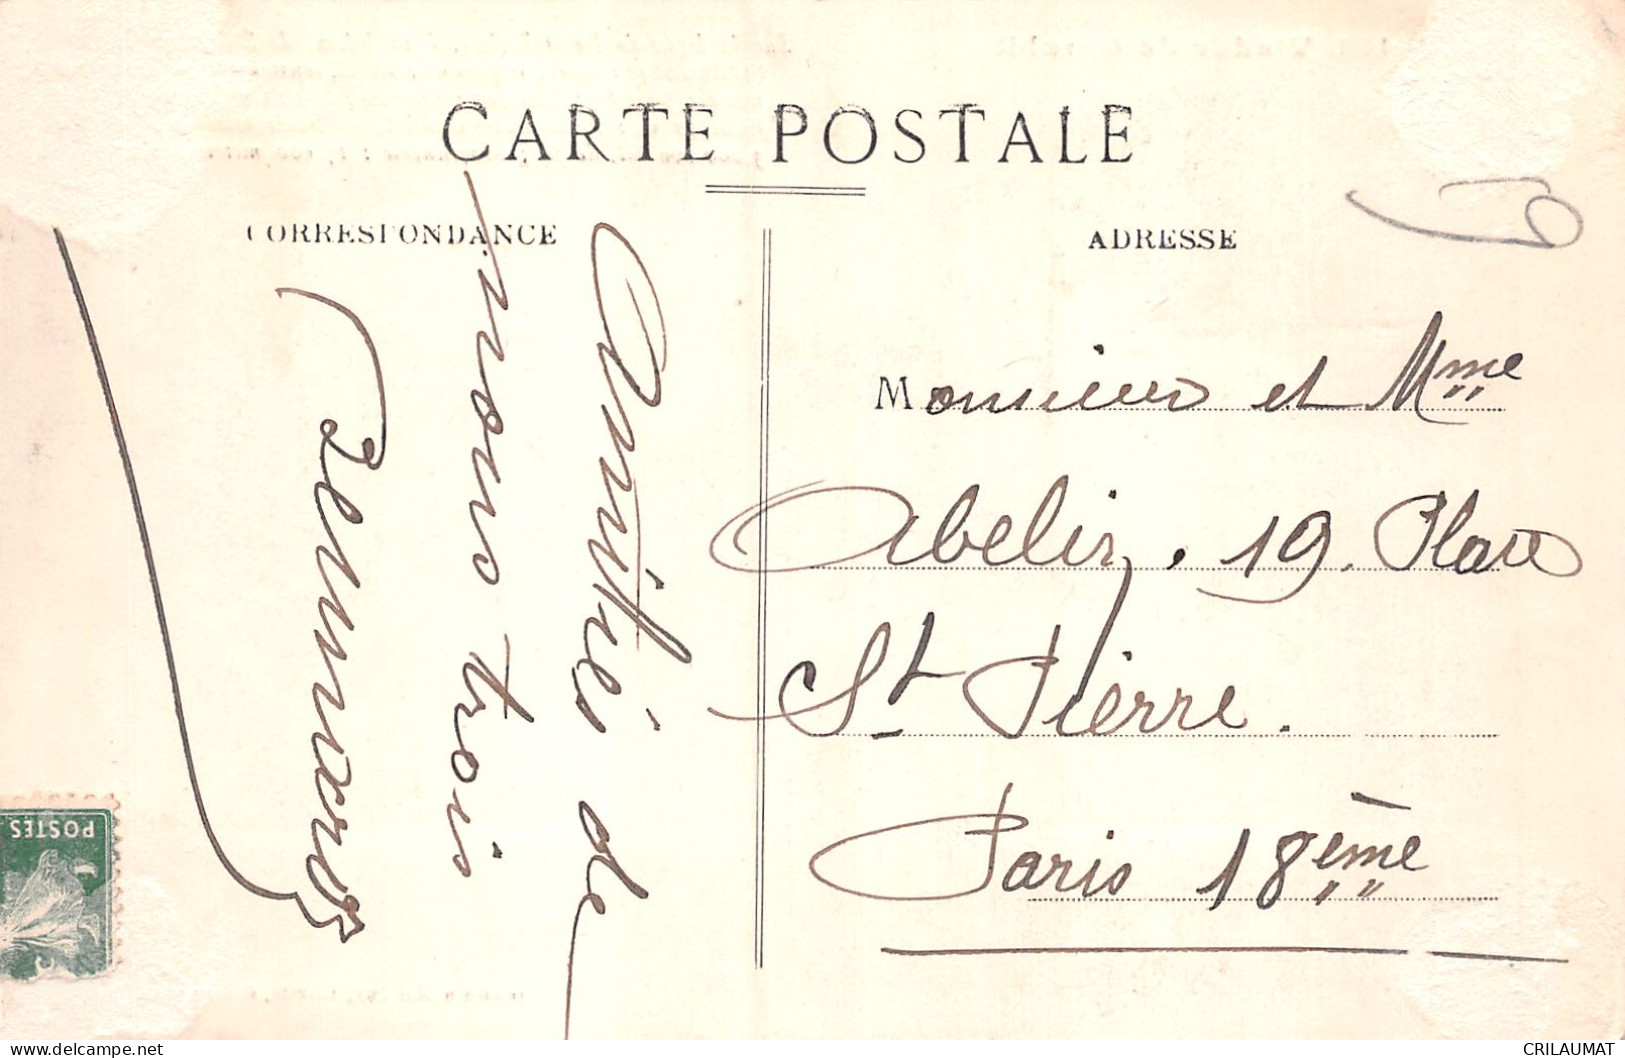 CARTE POSTALE
CORRESPONDANCE
ADRESSE
Amitiés de
nous trois
Monsieur et Mme
Abelin, 19. Place
St Pierre.
Paris 18ème
POSTES
delcampe.net
CRILAUMAT